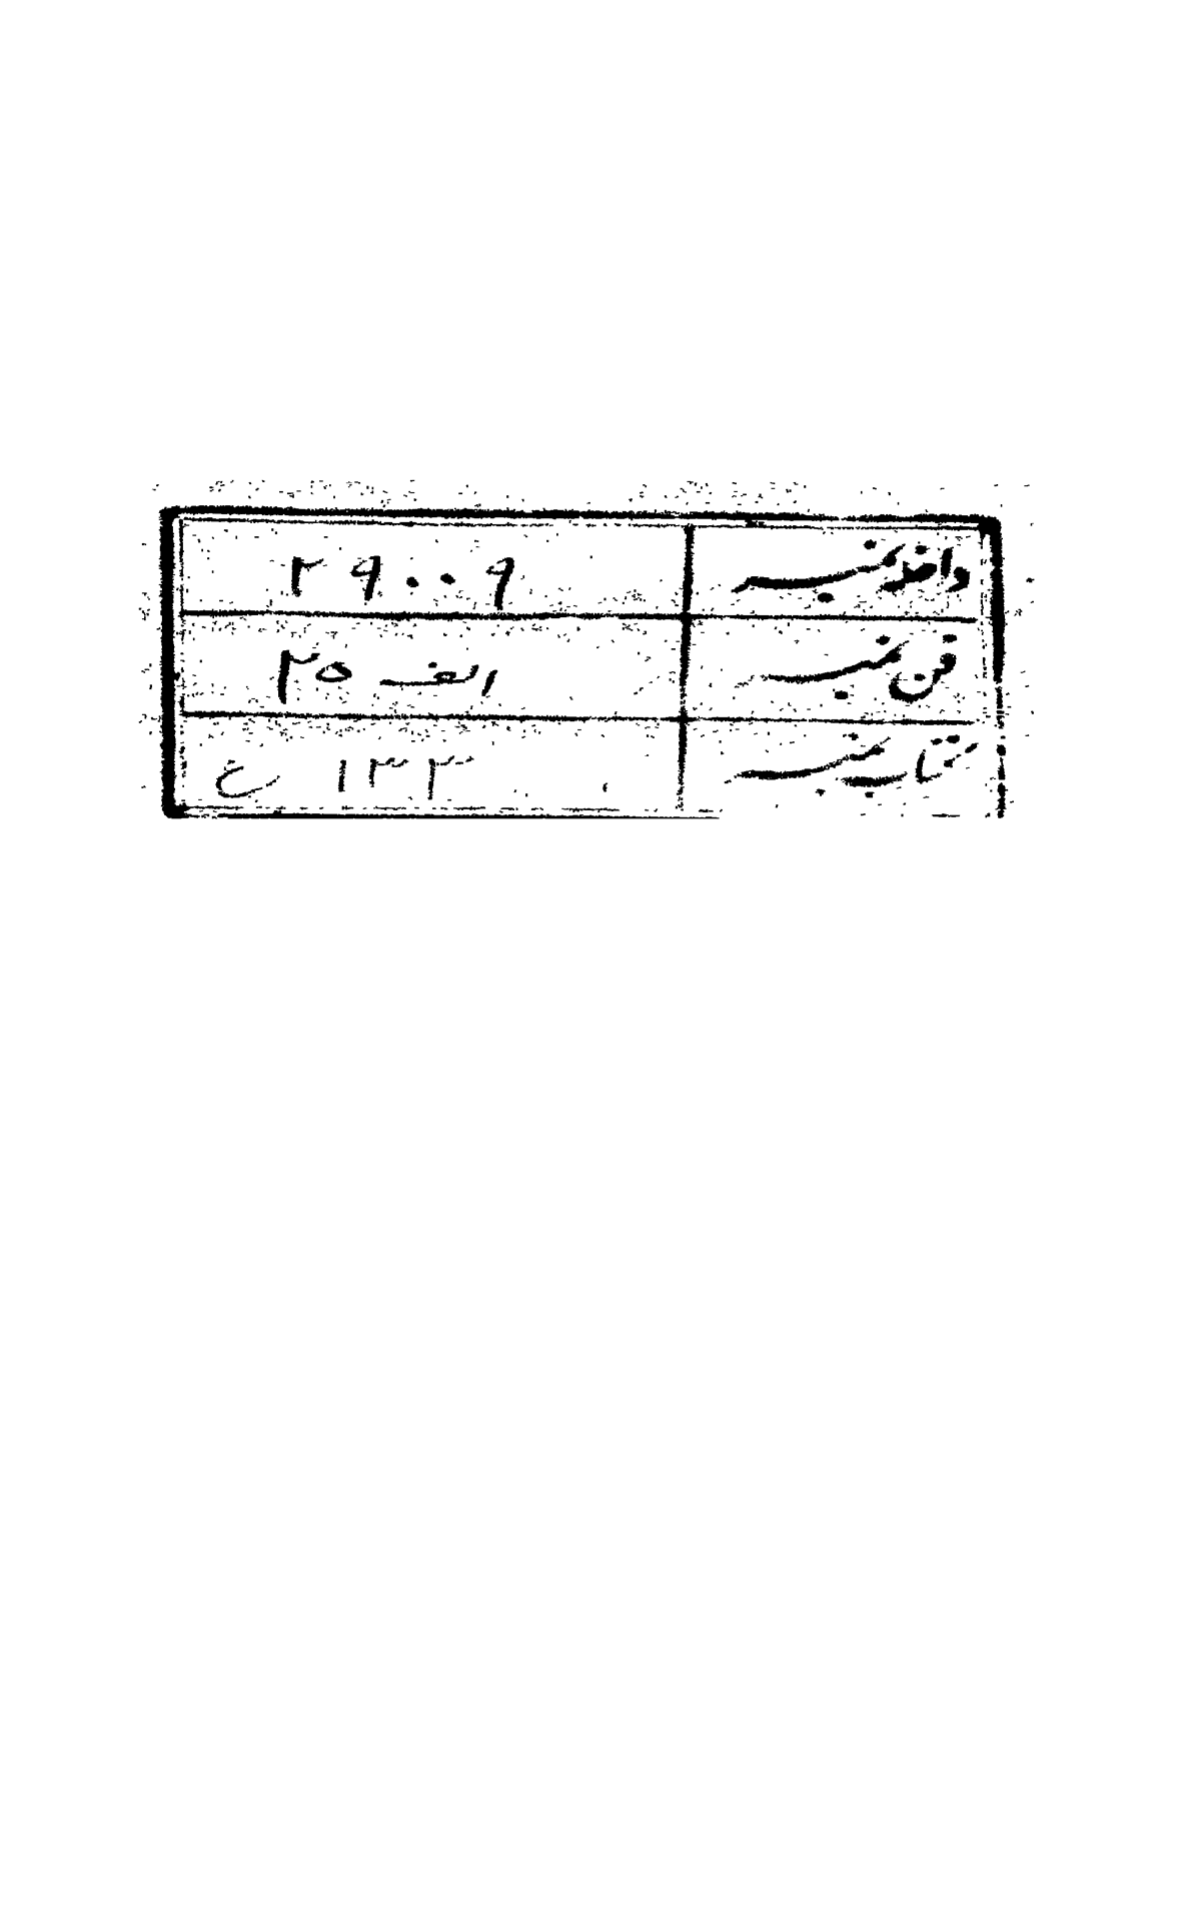 داخلہ نمبر ۲۹۰۰۹
فن نمبر ۲۵ الف
کتاب نمبر ۱۳۳ ع